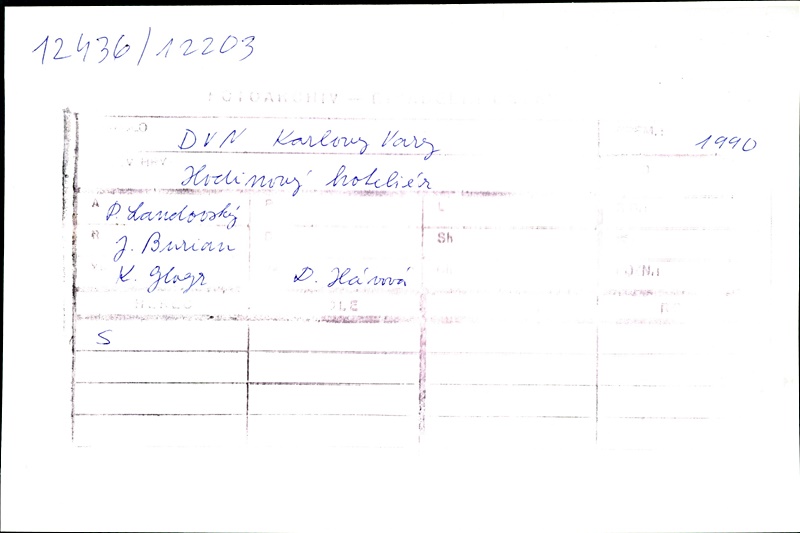 12436/12203
DVN Karlovy Vary 1990
Hodinový hoteliér
P. Landovský
J. Burian
K. Glogr D. Hávová
Sh
S